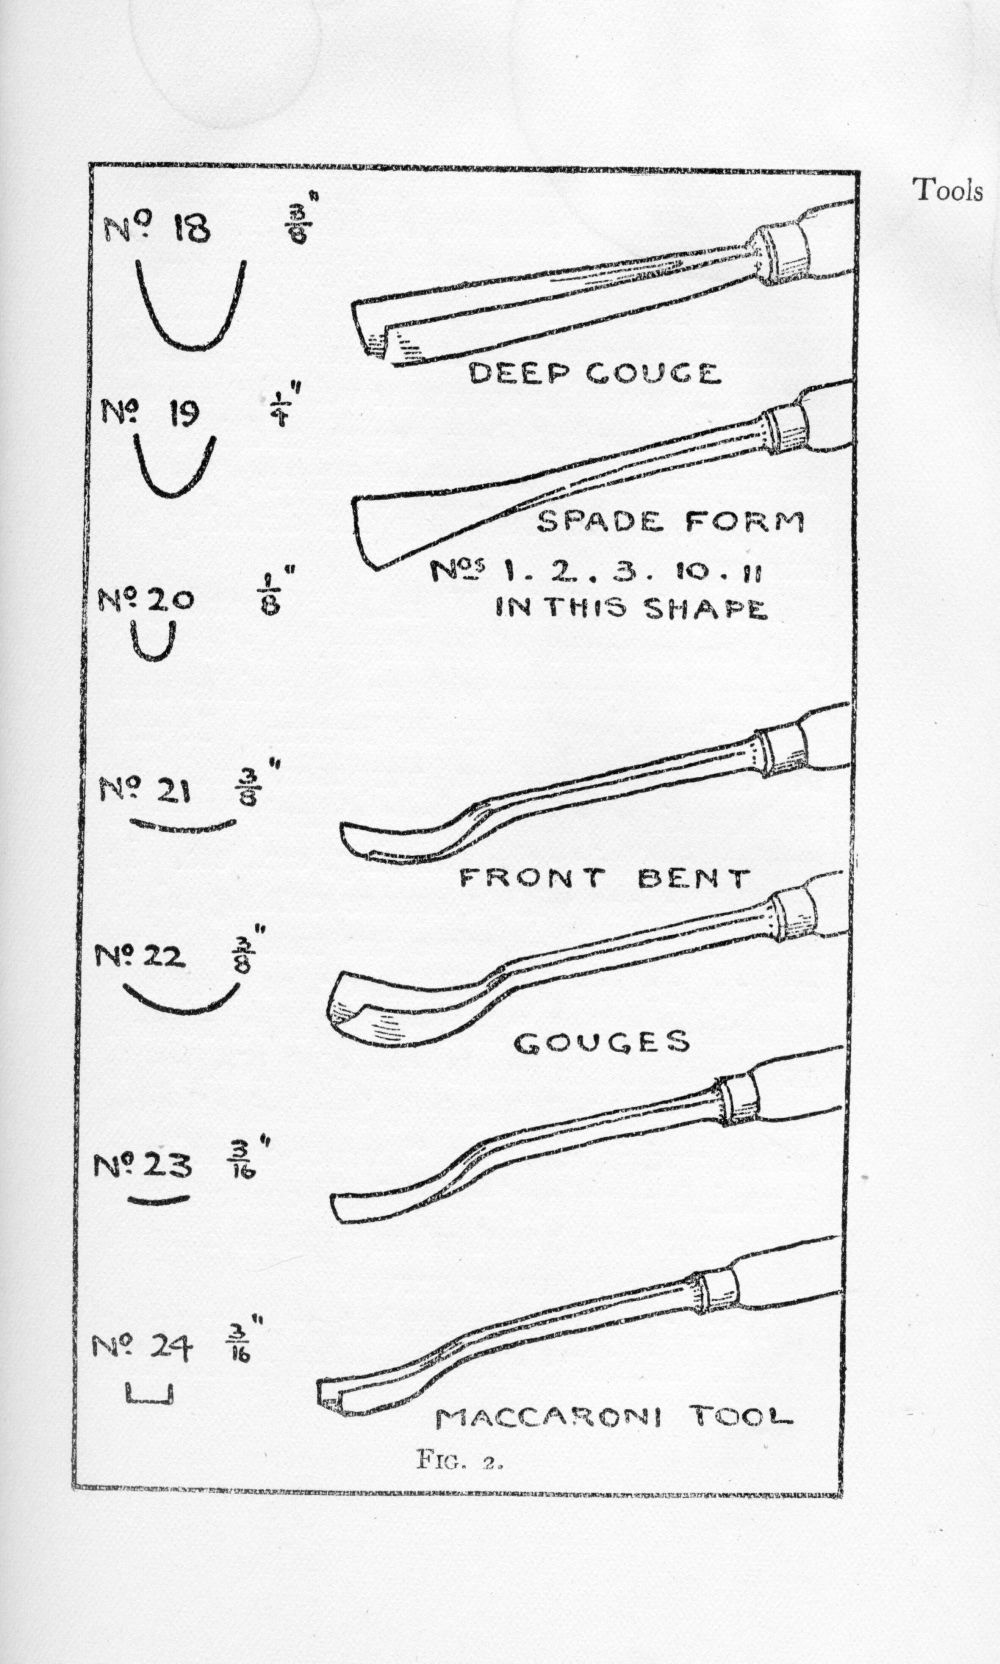 Tools
Nº 18 3/8"
DEEP GOUGE
Nº 19 1/4"
SPADE FORM
Nos 1. 2. 3. 10. 11
IN THIS SHAPE
Nº 20 1/8"
Nº 21 3/8"
FRONT BENT
Nº 22 3/8"
GOUGES
Nº 23 3/16"
Nº 24 3/16"
MACCARONI TOOL
FIG. 2.